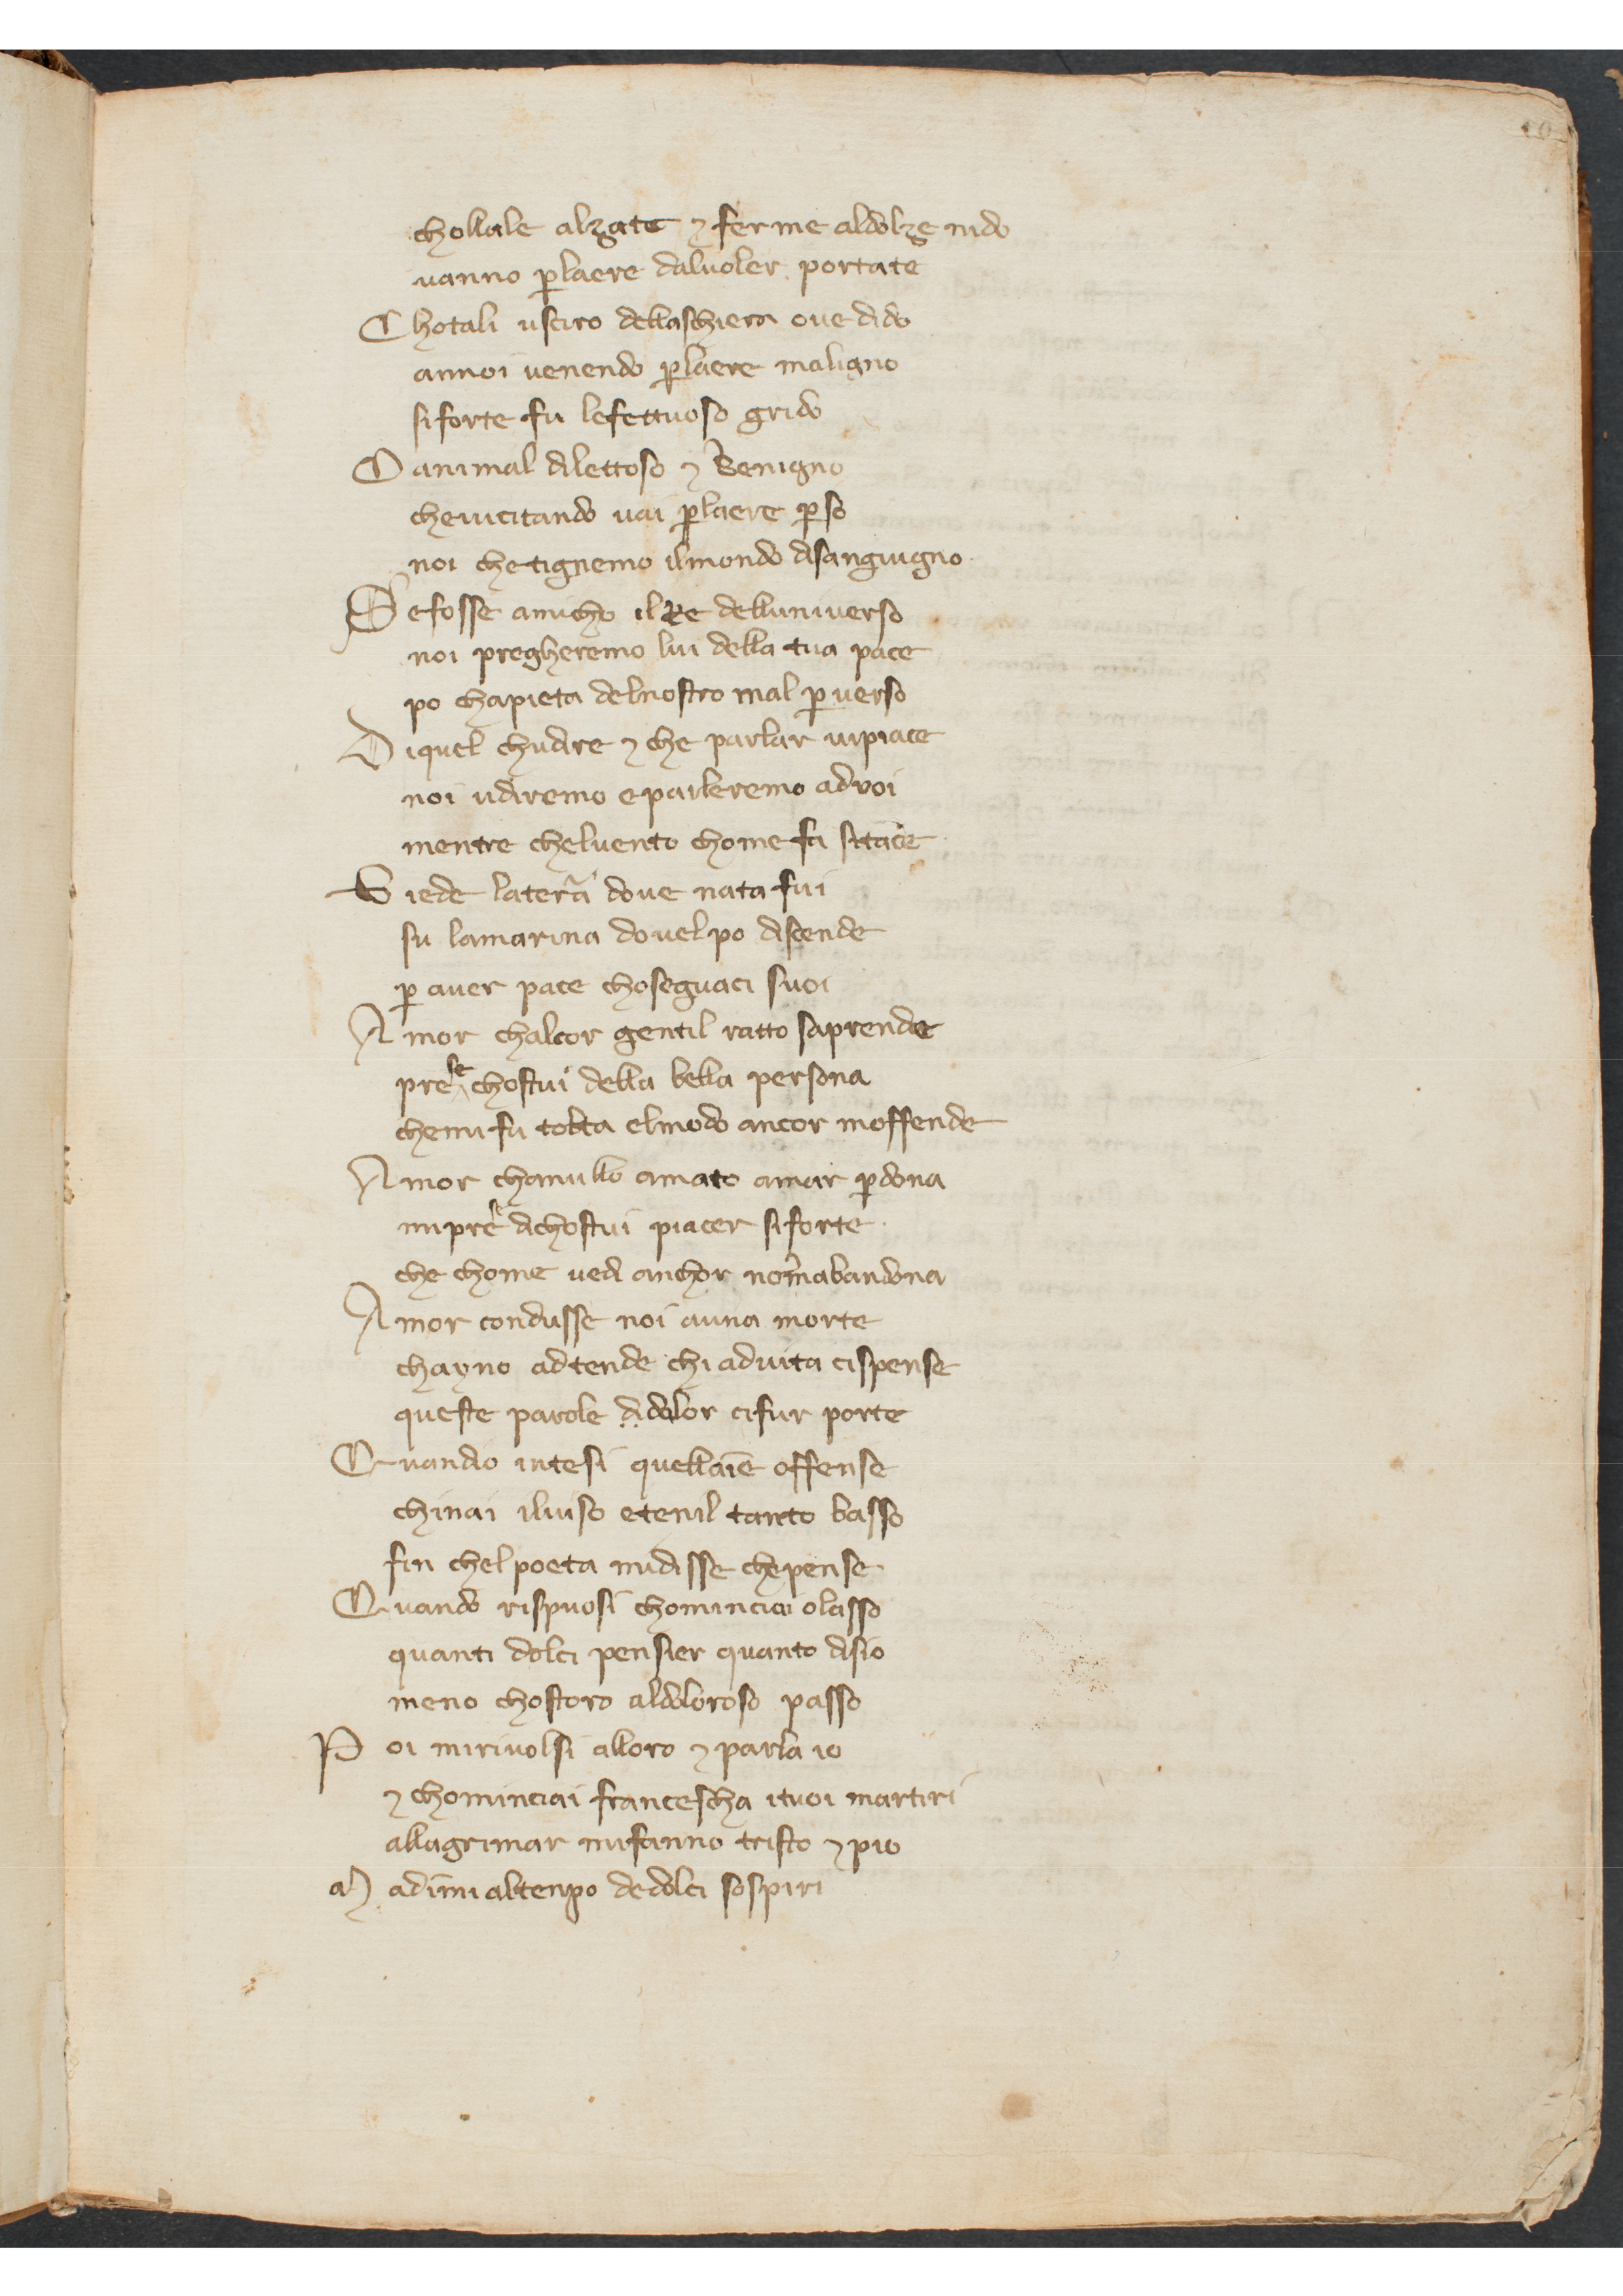 chollale alzate ⁊ ferme aldolze nido
uanno ꝑlaere daluoler portate
Chotali usciro dellaschiera oue dido
annoi uenendo ꝑlaere maligno
siforte fu lefettuoso grido
O animal dilettoso ⁊ Benigno
cheuicitando uai ꝑlaere ꝑso
noi che tignemo ilmondo disanguigno
Sefosse amicho il Re delluniuerso
noi pregheremo lui della tua pace
po chapieta delnostro mal ꝑuerso
Diquel chudire ⁊ che parlar uipiace
noi udiremo eparleremo advoi
mentre cheluento chome fa sitace
Siede laterã doue nata fui
su lamarina douel po discende
ꝑ auer pace choseguaci suoi
Amor chalcor gentil ratto saprende
prese chostui della bella persona
chemifu tolta elmodo ancor moffende
Amor chanullo amato amar ꝑdona
miprese dichostui piacer siforte
che chome uedi anchor nom̃abandona
Amor condusse noi auna morte
chayno adtende chi aduita cispense
queste parole didolor cifur porte
Quandio intesi quellaīe offense
chinai iluiso etenil tanto basso
fin chel poeta midisse chepense
Quando rispuosi chominciai olasso
quanti dolci pensier quanto disio
meno chostoro aldoloroso passo
Poi miriuolsi alloro ⁊ parla io
⁊ chominciai francescha ituoi martiri
allagrimar mifanno tristo ⁊ pio
Madim̄i altenpo dedolci sospiri